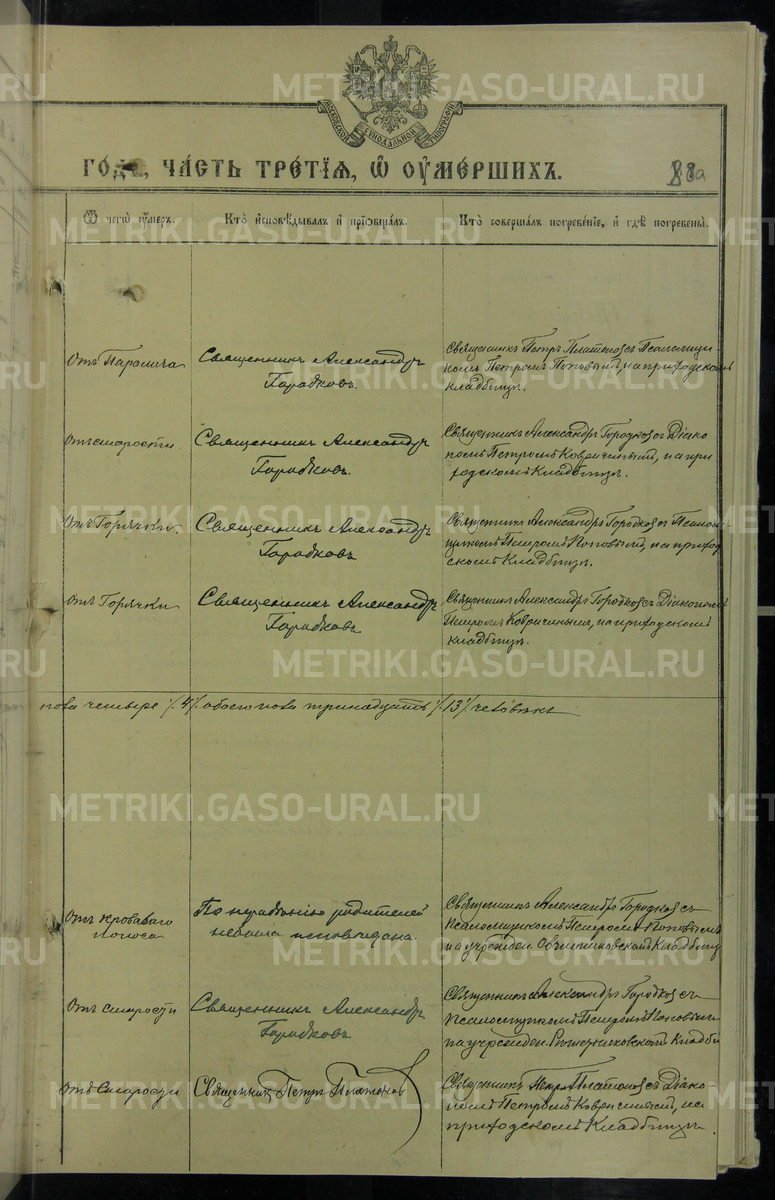 МОСКОВСКОЙ СѴНОДАЛЬНОЙ ТИПОГРАФІИ
года, часть третїѧ, ѡ оумершихъ.
88а
Ѿ чегѡ оумеръ.
Кто исповѣдывалъ и прїобщалъ.
Кто совершалъ погребенїе, и гдѣ погребены.
Отъ Паралича
Священникъ Александръ
Городковъ.
Священникъ Петръ Платоновъ съ Псаломщи-
комъ Петромъ Поповымъ, на приходскомъ
кладбищѣ.
Отъ старости
Священникъ Александръ
Городковъ.
Священникъ Александръ Городковъ съ Діако
номъ Петромъ на при
ходскомъ Кладбищѣ.
Отъ Горячки.
Священникъ Александръ
Городковъ
Священникъ Александръ Городковъ съ Псалом
щикомъ Петромъ Поповымъ, на приход
скомъ Кладбищѣ.
Отъ Горячки
Священникъ Александръ
Городковъ
Священникъ Александръ Городковъ съ Діакономъ
Петромъ на приходскомъ
кладбищѣ.
пола четыре /4/, обоего пола тринадцать /13/ человѣкъ
Отъ кроваваго
поноса
По нерадѣнію родителей
не была исповѣдана.
Священникъ Александръ Городковъ съ
Псаломщикомъ Петромъ Поповымъ
на учрежден. Кладбищѣ
Отъ старости
Священникъ Александръ
Городковъ
Священникъ Александръ Городковъ съ
Псаломщикомъ Петромъ Поповымъ
на учрежден. Кладби
Отъ Старости
Священникъ Петръ Платоновъ
Священникъ Петръ Платоновъ съ Діако-
номъ Петромъ на
приходскомъ Кладбищѣ.
METRIKI.GASO-URAL.RU